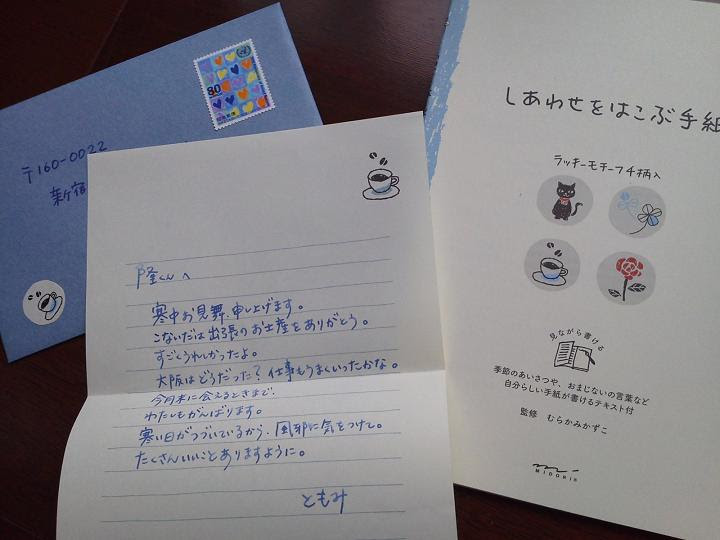 〒160-0022
新宿
80
隆くんへ
寒中お見舞い申し上げます。
こないだは出張のお土産をありがとう。
すごくうれしかったよ。
大阪はどうだった？仕事もうまくいったかな。
今月末に会えるときまで、
わたしもがんばります。
寒い日がつづいているから、風邪に気をつけて。
たくさんいいことありますように。
ともみ
しあわせをはこぶ手紙
ラッキーモチーフ4柄入
見ながら書ける
季節のあいさつや、おまじないの言葉など
自分らしい手紙が書けるテキスト付
監修 むらかみかずこ
MIDORI